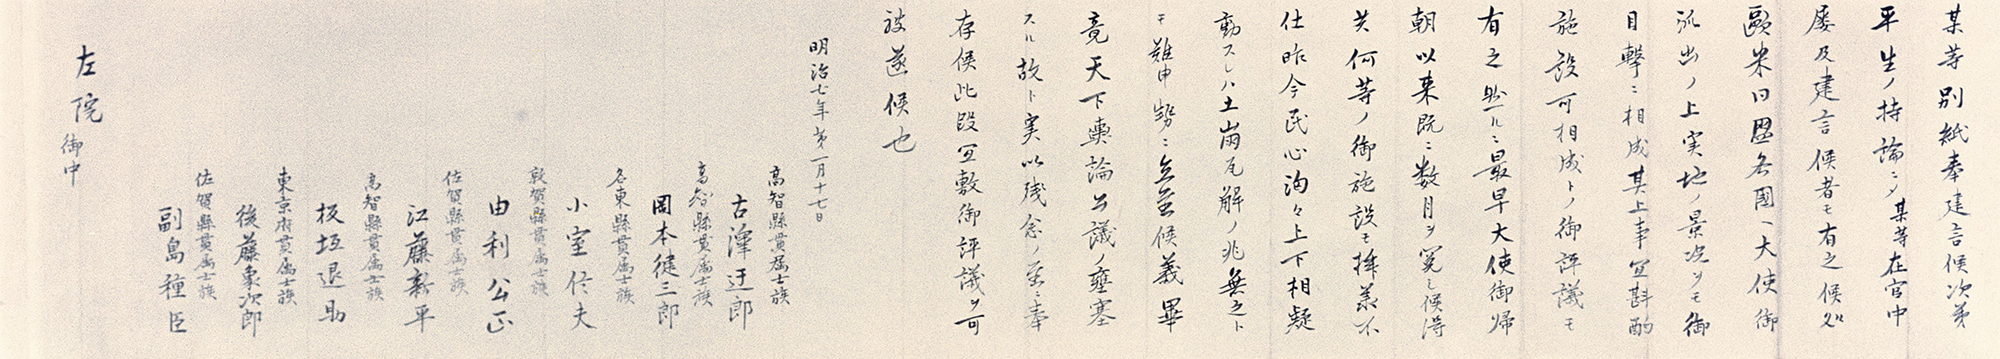 某等別紙奉建言候次第
平生ノ持論ニシテ某等在官中
屡及建言候者モ有之候処
欧米同盟各国ヘ大使御
派出ノ上実地ノ景況ヲモ御
目撃ニ相成其上事宜斟酌
施設可相成トノ御評議モ
有之然ルニ最早大使御帰
朝以来既ニ数月ヲ閲シ候得
共何等ノ御施設モ拝承不
仕昨今民心洶々上下相疑
動スレハ土崩瓦解ノ兆無之ト
モ難申勢ニ立至候義畢
竟天下輿論公議ノ壅塞
スル故ト実以残念ノ至ニ奉
存候此段宜敷御評議ヲ可
被遂候也
明治七年第一月十七日
高智縣貫属士族
古澤迂郎
高智縣貫属士族
岡本健三郎
名東縣貫属士族
小室信夫
敦賀縣貫属士族
由利公正
佐賀縣貫属士族
江藤新平
高智縣貫属士族
板垣退助
東京府貫属士族
後藤象次郎
佐賀縣貫属士族
副島種臣
左院
御中